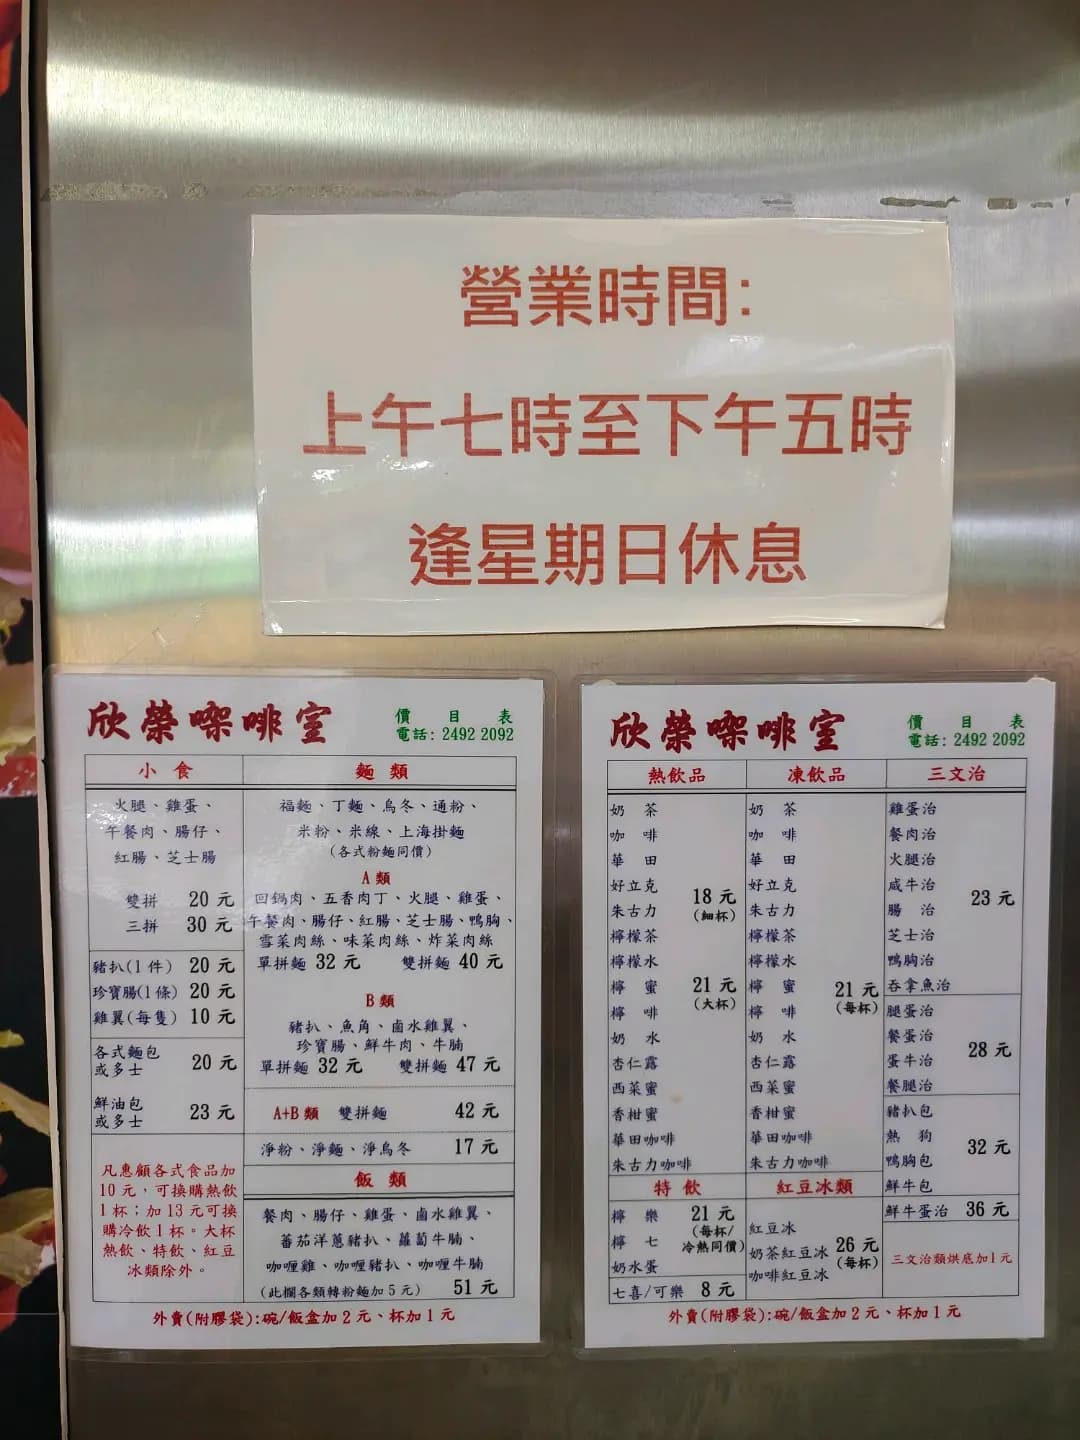 營業時間:
上午七時至下午五時
逢星期日休息
欣榮咖啡室
價目表
電話: 2492 2092
小食
火腿、雞蛋、
午餐肉、腸仔、
紅腸、芝士腸
雙拼 20 元
三拼 30 元
豬扒(1 件) 20 元
珍寶腸(1 條) 20 元
雞翼(每隻) 10 元
各式麵包
或多士 20 元
鮮油包
或多士 23 元
凡惠顧各式食品加
10 元,可換購熱飲
1 杯;加 13 元可換
購冷飲 1 杯。大杯
熱飲、特飲、紅豆
冰類除外。
麵類
福麵、丁麵、烏冬、通粉、
米粉、米線、上海掛麵
(各式粉麵同價)
A 類
回鍋肉、五香肉丁、火腿、雞蛋、
午餐肉、腸仔、紅腸、芝士腸、鴨胸、
雪菜肉絲、味菜肉絲、炸菜肉絲
單拼麵 32 元 雙拼麵 40 元
B 類
豬扒、魚角、鹵水雞翼、
珍寶腸、鮮牛肉、牛腩
單拼麵 32 元 雙拼麵 47 元
A+B 類 雙拼麵 42 元
淨粉、淨麵、淨烏冬 17 元
飯類
餐肉、腸仔、雞蛋、鹵水雞翼、
蕃茄洋蔥豬扒、蘿蔔牛腩、
咖喱雞、咖喱豬扒、咖喱牛腩
(此欄各類轉粉麵加 5 元) 51 元
外賣(附膠袋):碗/飯盒加 2 元、杯加 1 元
欣榮咖啡室
價目表
電話: 2492 2092
熱飲品
奶茶
咖啡
華田
好立克
朱古力
檸檬茶
檸檬水
檸蜜
檸啡
奶水
杏仁露
西菜蜜
香柑蜜
華田咖啡
朱古力咖啡
18 元
(細杯)
21 元
(大杯)
特飲
檸樂
檸七
奶水蛋
21 元
(每杯/
冷熱同價)
七喜/可樂 8 元
凍飲品
奶茶
咖啡
華田
好立克
朱古力
檸檬茶
檸檬水
檸蜜
檸啡
奶水
杏仁露
西菜蜜
香柑蜜
華田咖啡
朱古力咖啡
21 元
(每杯)
紅豆冰類
紅豆冰
奶茶紅豆冰
咖啡紅豆冰
26 元
(每杯)
三文治
雞蛋治
餐肉治
火腿治
咸牛治
腸治
芝士治
鴨胸治
吞拿魚治
23 元
腿蛋治
餐蛋治
蛋牛治
餐腿治
28 元
豬扒包
熱狗
鴨胸包
鮮牛包
32 元
鮮牛蛋治 36 元
三文治類烘底加1元
外賣(附膠袋):碗/飯盒加 2 元、杯加 1 元